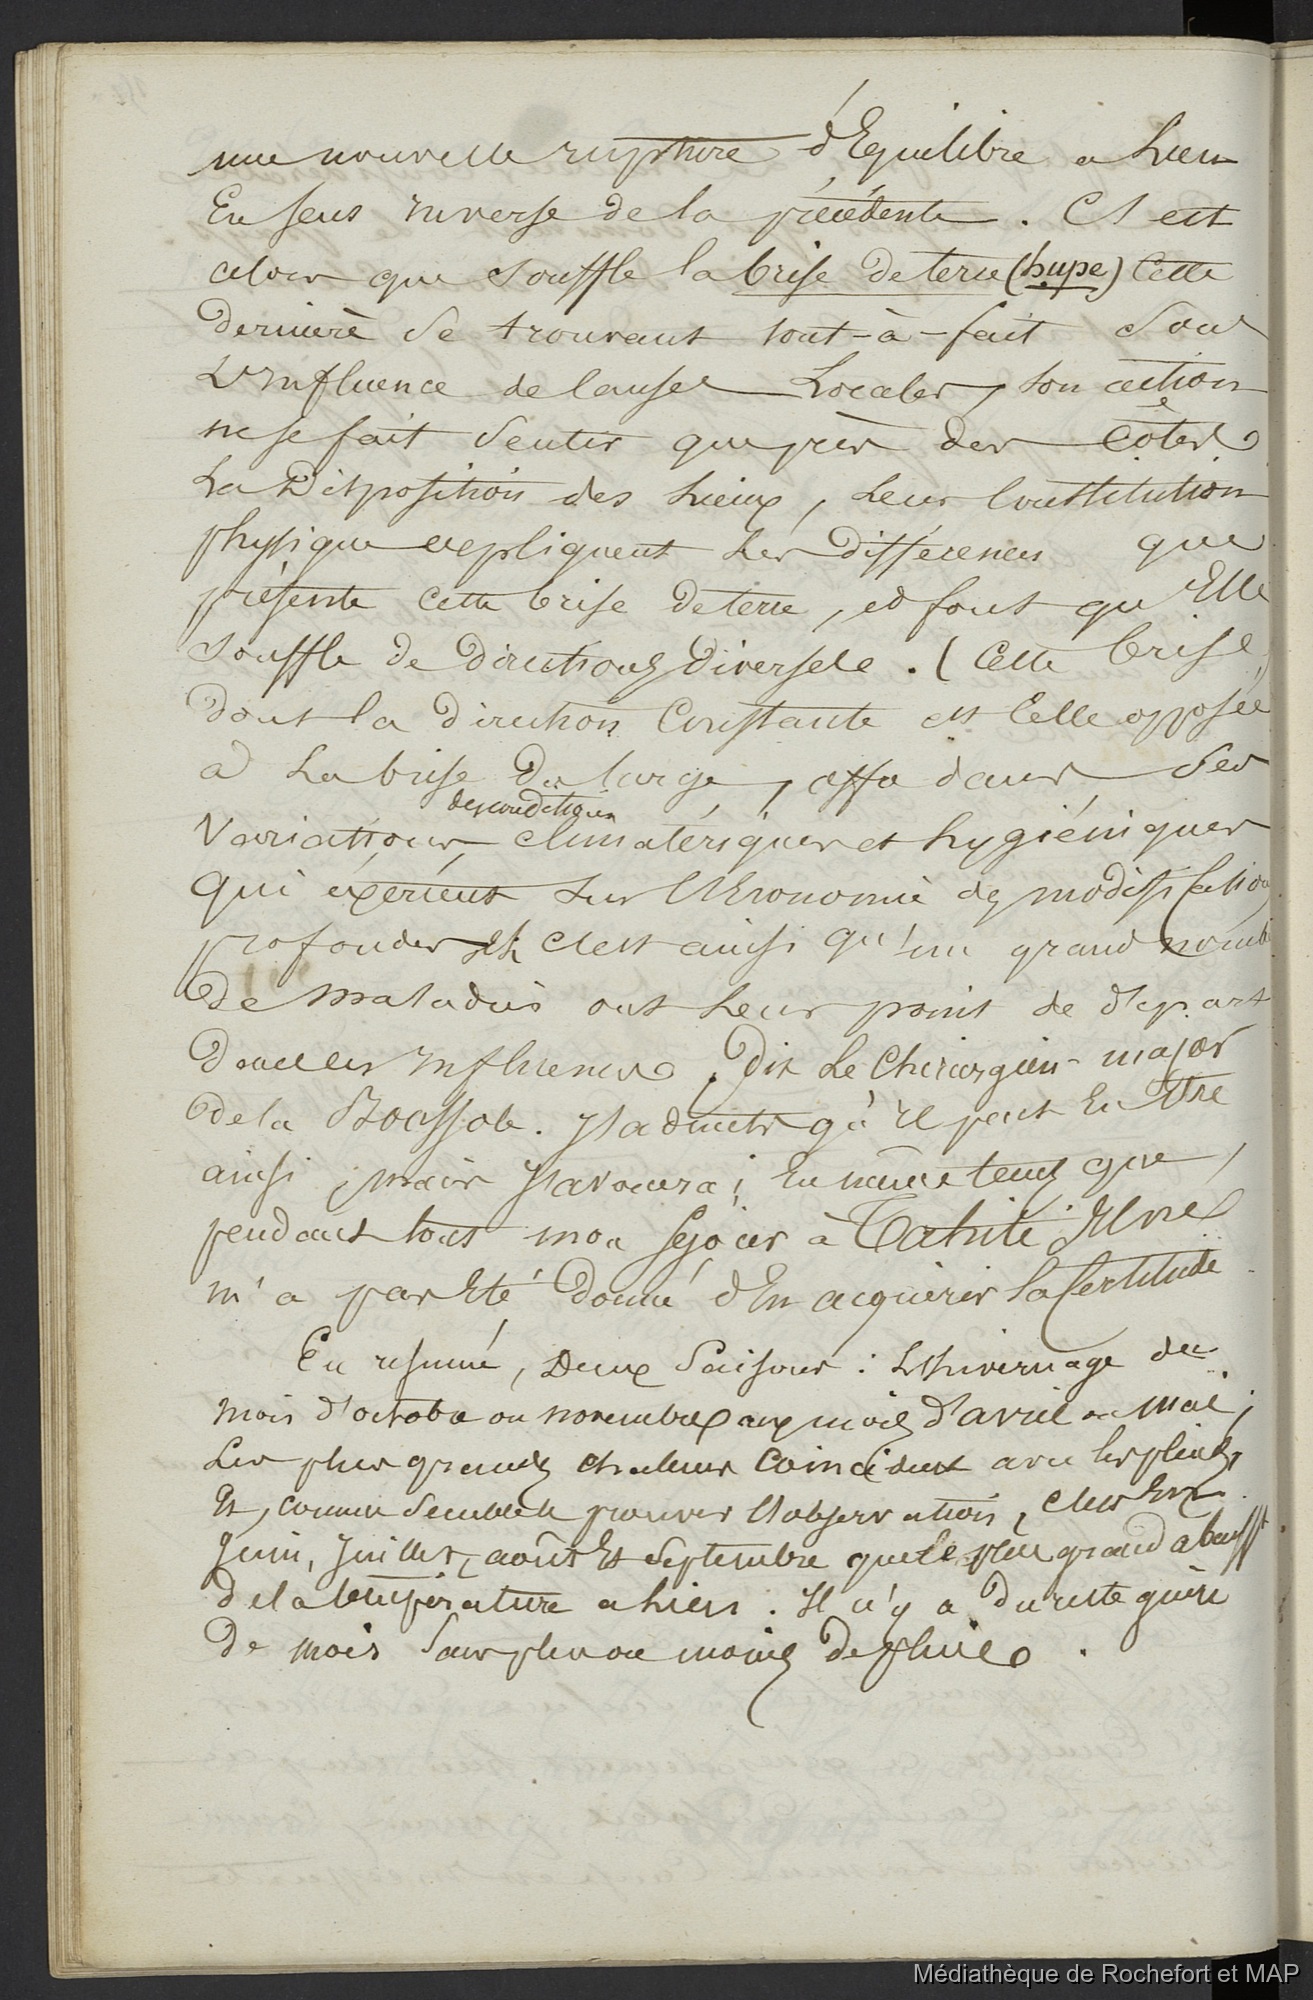 une nouvelle rupture d'Equilibre a lieu
En sens inverse de la précédente. C'est
alors que souffle la brise de terre (hupe) Cette
dernière se trouvant tout-à-fait sous
L'influence de causes Locales, son action
ne se fait sentir que près des côtes.
La Disposition des Lieux, Leur Constitution
physique expliquent Les différences que
présente cette brise de terre, et font qu'Elle
souffle de directions diverses. ( Cette brise,
Dont la direction Constante est Celle opposée
à La brise du large, a dans ses
Variations des conditions climatériques et hygiéniques
qui exercent sur l'Economie des modifications
profondes et c'est ainsi qu'un grand nomb
De maladies ont Leur point de départ
dans ces influences, dit Le Chirurgien-major
de la Boussole. J'admets qu'il peut En Etre
ainsi, mais J'avouerai En même temps que,
pendant tout mon Séjour à Tahiti Il ne
m'a pas Eté donné d'En acquérir la Certitude
En résumé, Deux Saisons : L'hivernage du
mois d'octobre ou novembre aux mois d'avril ou Mai;
Les plus grandes chaleurs Coincident avec les pluies,
Et, comme semble le prouver l'observation, c'est En
Juin, Juillet, août Et Septembre que le plus grand abaisst
de la température a lieu. Il n'y a du reste guère
De mois sans plus ou moins De pluie.
Médiathèque de Rochefort et MAP